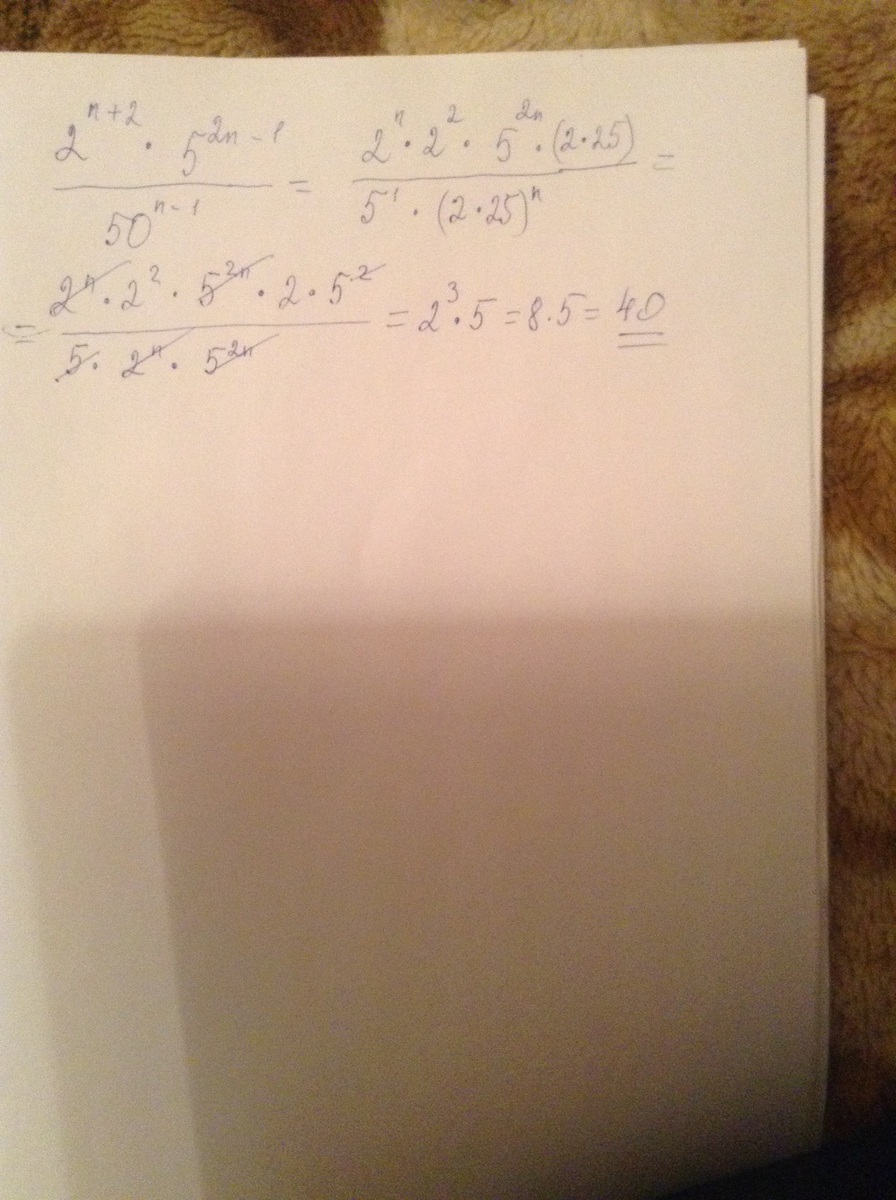 2^{n+2} · 5^{2n-1} / 50^{n-1} = 2^n · 2^2 · 5^{2n} · (2·25) / 5^1 · (2·25)^n =
= 2^n · 2^2 · 5^{2n} · 2 · 5^2 / 5 · 2^n · 5^{2n} = 2^3 · 5 = 8·5 = 40